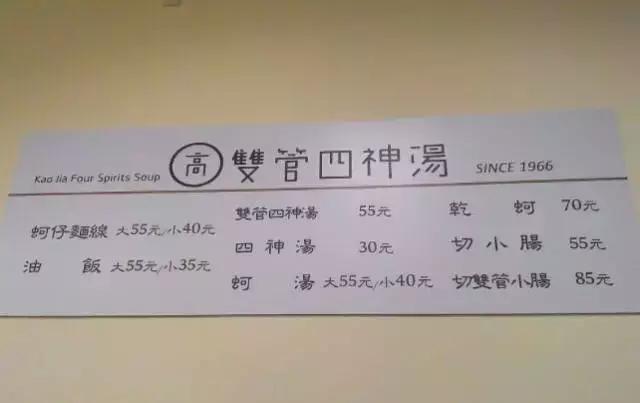 Kao Jia Four Spirits Soup 高 雙管四神湯 SINCE 1966
蚵仔麵線 大55元/小40元
油飯 大55元/小35元
雙管四神湯 55元
四神湯 30元
蚵湯 大55元/小40元
乾蚵 70元
切小腸 55元
切雙管小腸 85元